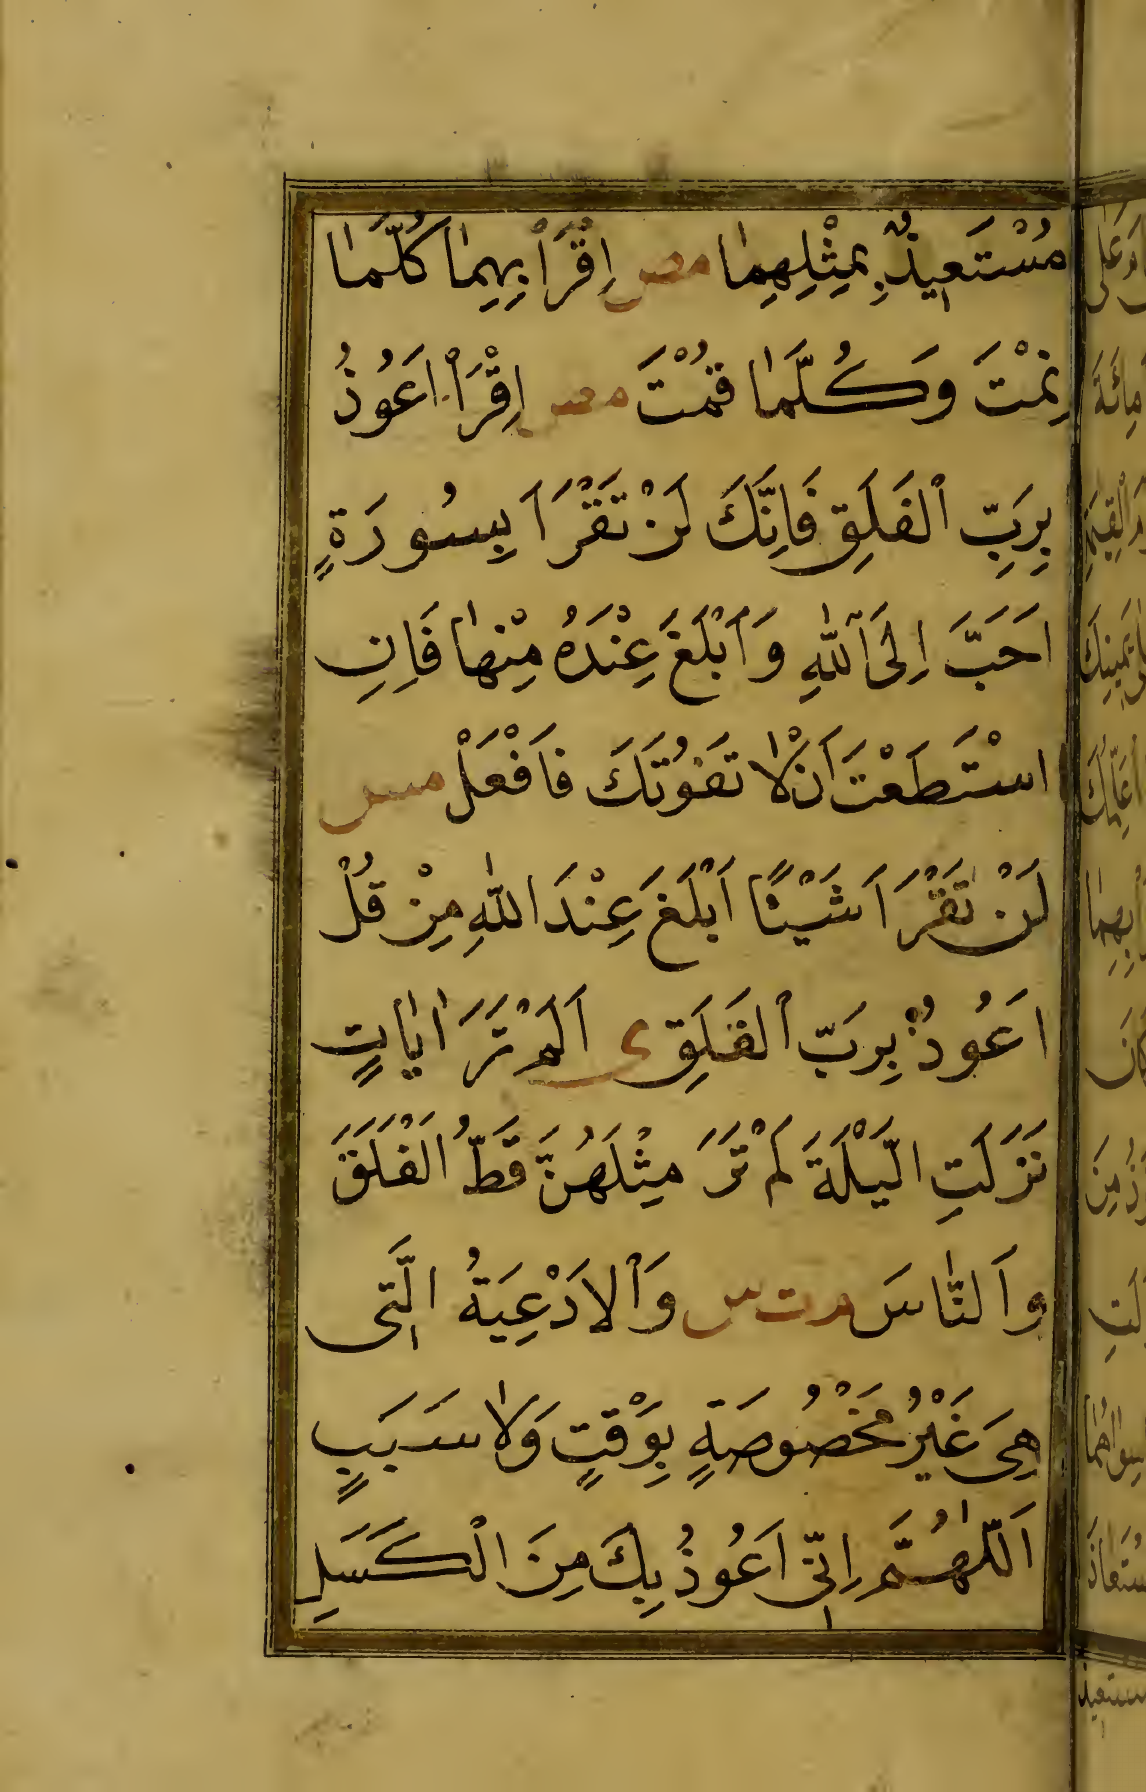 مُسْتَعِيذٌ بِمِثْلِهِمَا مص اِقْرَأْ بِهِمَا كُلَّمَا
نِمْتَ وَكُلَّمَا قُمْتَ مص اِقْرَأْ اَعُوذُ
بِرَبِّ الْفَلَقِ فَاِنَّكَ لَنْ تَقْرَاَ بِسُورَةٍ
اَحَبَّ اِلَى اللّٰهِ وَاَبْلَغَ عِنْدَهُ مِنْهَا فَاِنِ
اسْتَطَعْتَ اَنْ لَا تَفُوتَكَ فَافْعَلْ مس
لَنْ تَقْرَاَ شَيْئًا اَبْلَغَ عِنْدَ اللّٰهِ مِنْ قُلْ
اَعُوذُ بِرَبِّ الْفَلَقِ ى اَلَمْ تَرَ اٰيَاتٍ
نَزَلَتِ الَّيْلَةَ لَمْ تَرَ مِثْلَهُنَّ قَطُّ الْفَلَقَ
وَالنَّاسَ م ت س وَالْاَدْعِيَةُ الَّتِى
هِىَ غَيْرُ مَخْصُوصَةٍ بِوَقْتٍ وَلَا سَبَبٍ
اَللّٰهُمَّ اِنِّى اَعُوذُ بِكَ مِنَ الْكَسَلِ